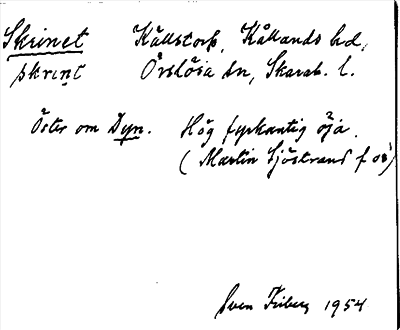 Skrinet Källstorp, Kållands hd,
skrint Örslösa sn, Skarab. l.
Öster om Dyn. Hög fyrkantig öja.
(Martin Sjöstrand f 08)
Sven Friberg 1954